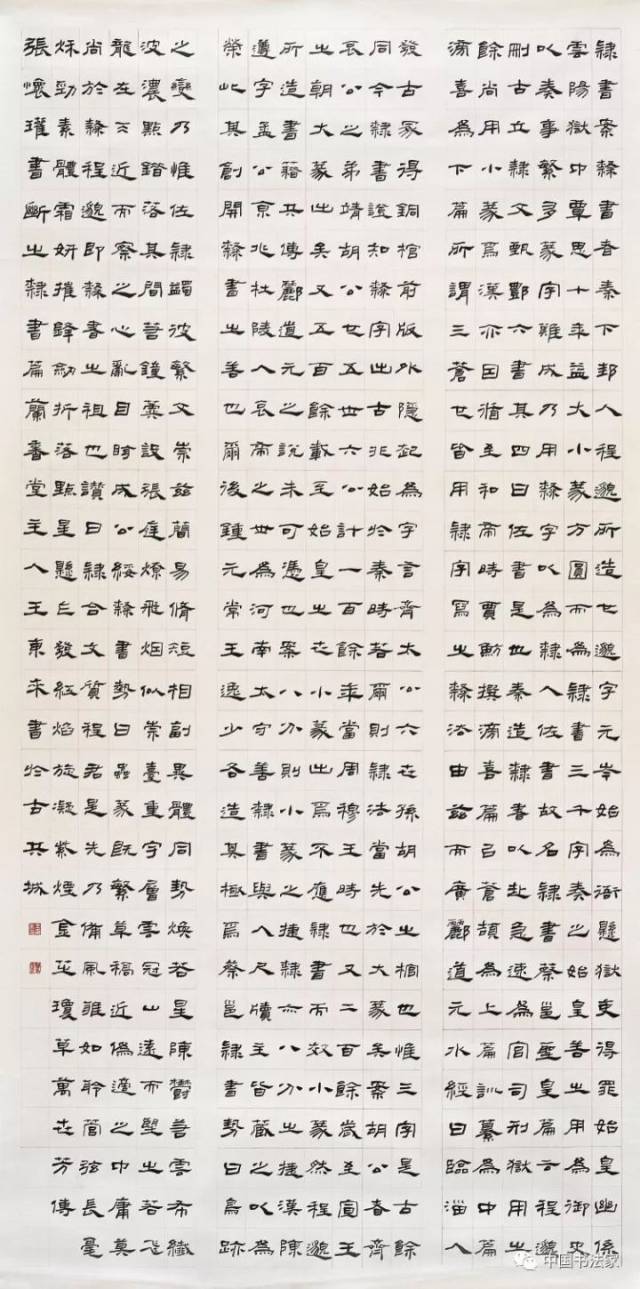 隸書案隸書者秦下邽人程邈所造也邈字元岑始為衙縣獄吏得罪始皇幽係
雲陽獄中覃思十年益大小篆方圓而為隸書三千字奏之始皇善之用為御史
以奏事繁多篆字難成乃用隸字以為隸人佐書故名隸書蔡邕聖皇篇云程邈
刪古立隸文甄酆六書其四曰佐書是也秦造隸者以赴急速為官司刑獄用之
餘尚用小篆焉漢亦因循至和帝時賈魴撰滂喜篇以蒼頡為上篇訓纂為中篇
滂喜為下篇所謂三蒼也皆用隸字寫之隸法由茲而廣酈道元水經曰臨淄人
發古冢得銅棺前版外隱起為字言齊太公六世孫胡公之棺也惟三字是古餘
同今隸書說知隸字出古非始於秦時若爾則隸法當先於大篆矣案胡公者齊
哀公之弟靖胡公也五世六公計一百餘年當周穆王時也又二百餘歲至宣王
之朝大篆出矣又五百餘載至始皇之世小篆出焉不應隸書而效小篆然程邈
所造書籍共傳酈道元之說未可憑也案八分則小篆之捷隸亦八分之捷漢陳
遵字孟公京兆杜陵人哀帝之世為河南太守善隸書與人尺牘主皆藏之以為
榮此其創開隸書之善也爾後鍾元常王逸少各造其極焉蔡邕隸書勢曰鳥跡
之變乃惟佐隸蠲彼繁文崇茲簡易脩短相副異體同勢煥若星陳鬱若雲布纖
波濃點錯落其間若鐘簴設張庭燎飛烟似崇臺重宇層雲冠山遠而望之若飛
龍在天近而察之心亂目眩成公綏隸書勢曰蟲篆既繁草稿近偽適之中庸莫
尚於隸程邈即隸書之祖也讚曰隸合文質程君是先乃備風雅如聆管弦長毫
秌勁素體霜妍摧鋒劍折落點星懸乍發紅焰旋凝紫煙金芝瓊草萬世芳傳
張懷瓘書斷之隸書篇蘭香堂主人王東來書於古共城
中国书法家